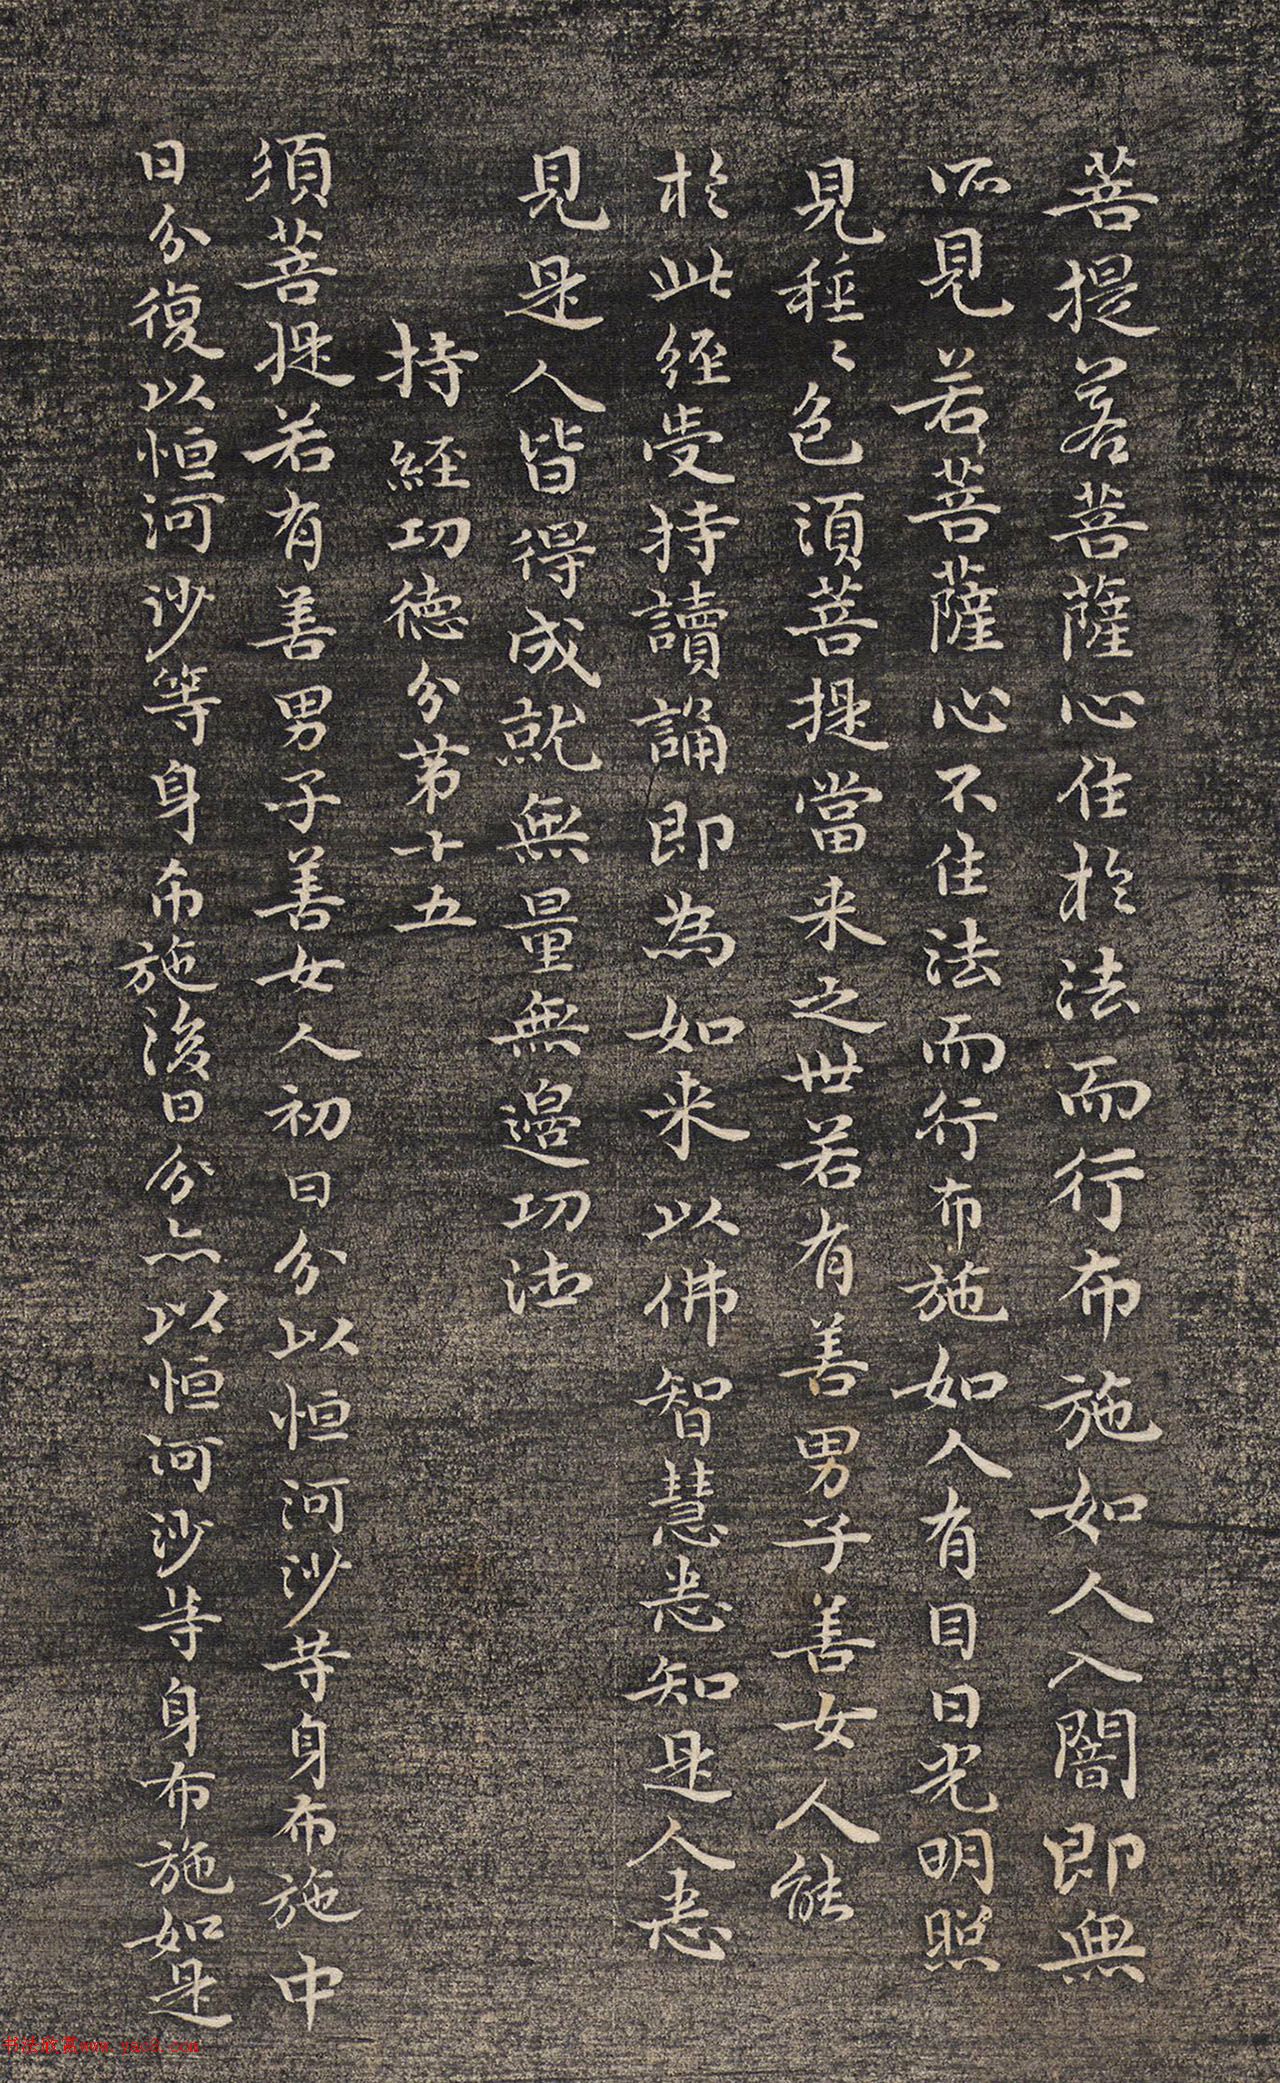 菩提若菩薩心住於法而行布施如人入闇即無
所見若菩薩心不住法而行布施如人有目日光明照
見種〻色須菩提當来之世若有善男子善女人能
於此經受持讀誦即為如来以佛智慧悉知是人悉
見是人皆得成就無量無邊功德
持經功德分第十五
須菩提若有善男子善女人初日分以恒河沙等身布施中
日分復以恒河沙等身布施後日分亦以恒河沙等身布施如是